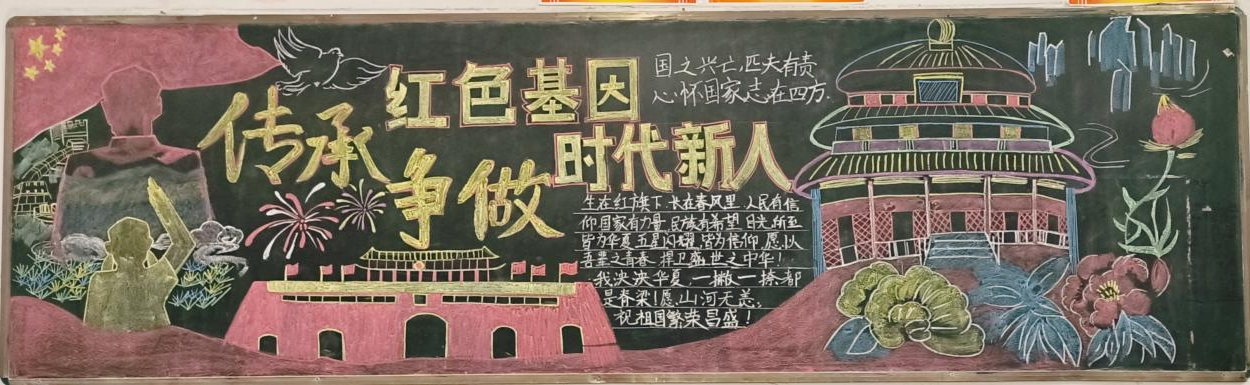 传承红色基因
争做时代新人
国之兴亡,匹夫有责
心怀国家志在四方.
生在红旗下,长在春风里,人民有信
仰国家有力量,民族有希望 目光所至
皆为华夏,五星闪耀,皆为信仰,愿以
吾辈之青春 捍卫盛世之中华!
我泱泱华夏,一撇一捺都
是脊梁!愿山河无恙,
祝祖国繁荣昌盛!